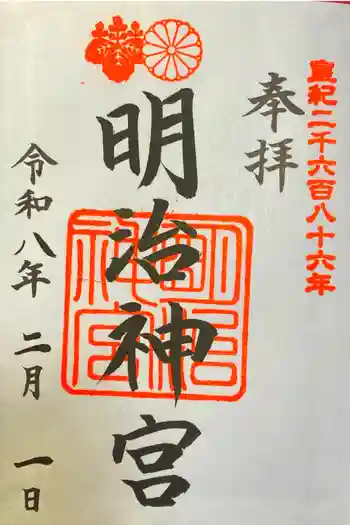 皇紀二千六百八十六年
奉拝
明治神宮
明治神宮
令和八年 二月 一日